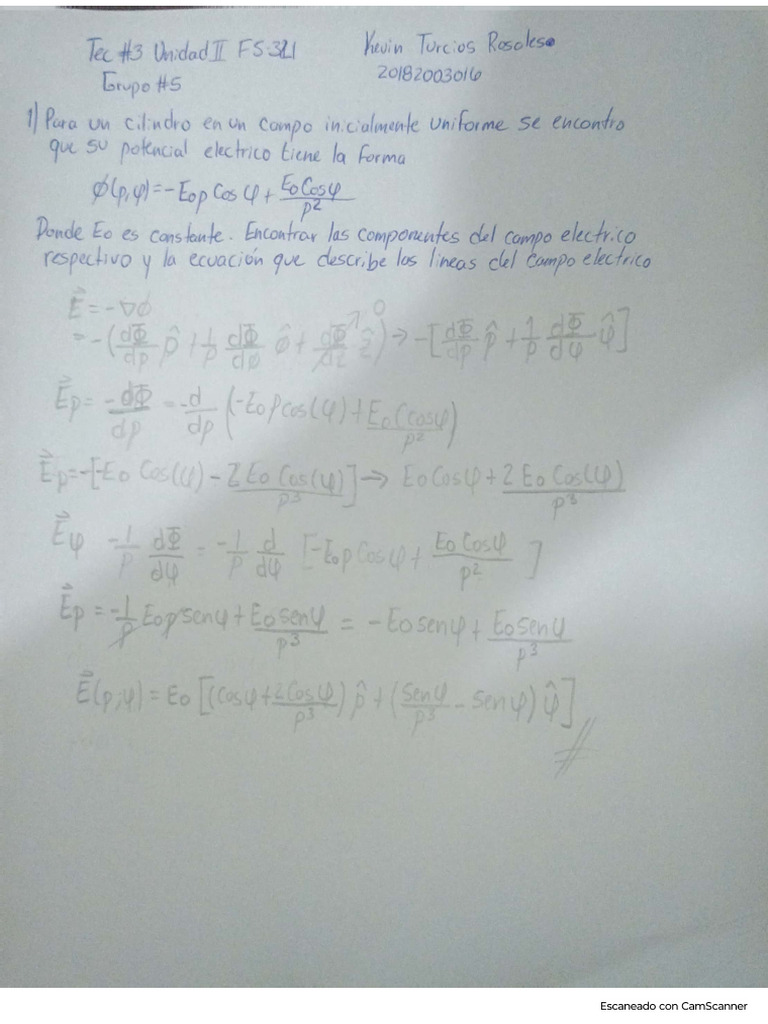 Tec #3 Unidad II FS-321 Kevin Turcios Rosales
Grupo #5 20182003016
1) Para un cilindro en un campo inicialmente uniforme se encontro
que su potencial electrico tiene la forma
φ(ρ,φ)=-E₀ρ Cos φ + E₀Cosφ/ρ²
Donde E₀ es constante. Encontrar las componentes del campo electrico
respectivo y la ecuación que describe las lineas del campo electrico
E⃗ = -∇φ
= -(dΦ/dρ ρ̂ + 1/ρ dΦ/dφ φ̂ + dΦ/dz ẑ)→ -[dΦ/dρ ρ̂ + 1/ρ dΦ/dφ φ̂] 0
E⃗ρ = -dΦ/dρ = -d/dρ (-E₀ρcos(φ) + E₀(cosφ/ρ²)
E⃗ρ=-[-E₀ Cos(φ) - 2E₀ Cos(φ)/ρ³] → E₀Cosφ + 2E₀Cos(φ)/ρ³
E⃗φ -1/ρ dΦ/dφ = -1/ρ d/dφ [-E₀ρ Cosφ + E₀Cosφ/ρ²]
E⃗ρ = -1/ρ E₀ρ senφ + E₀senφ/ρ³ = -E₀senφ + E₀Senφ/ρ³
E⃗(ρ,φ) = E₀ [(Cosφ + 2Cosφ/ρ³) ρ̂ + (Senφ/ρ³ - senφ) φ̂] //
Escaneado con CamScanner